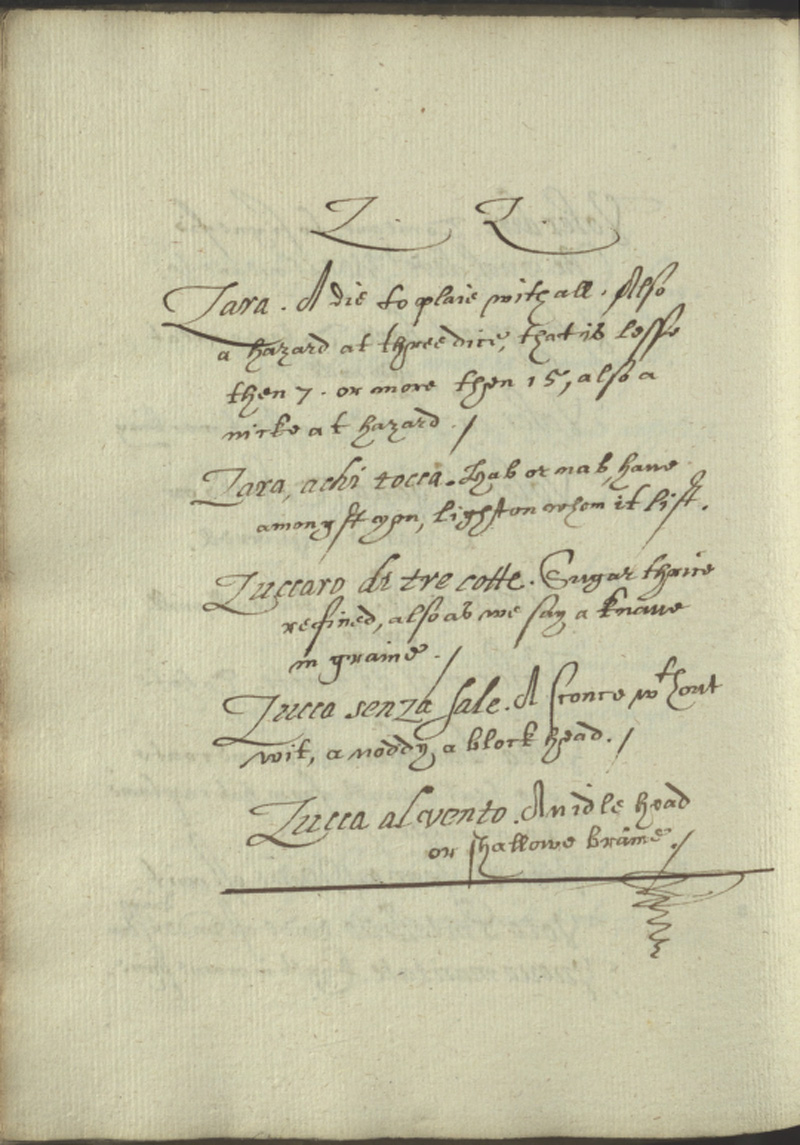 Z. Z.
Zara. A die to plaie withall. Also
a hazard at three dice, that is lesse
then 7. or more then 15, also a
nicke at hazard. /
Zara, achi tocca. Hab or nab, haue
amongst yow, light on whom it list.
Zuccaro di tre cotte. Sugar thrice
refined, also as we say a knaue
in graine. /
Zucca senza sale. A sconce wthout
wit, a noddy, a block head. /
Zucca al vento. An idle head
or shallowe braine. /